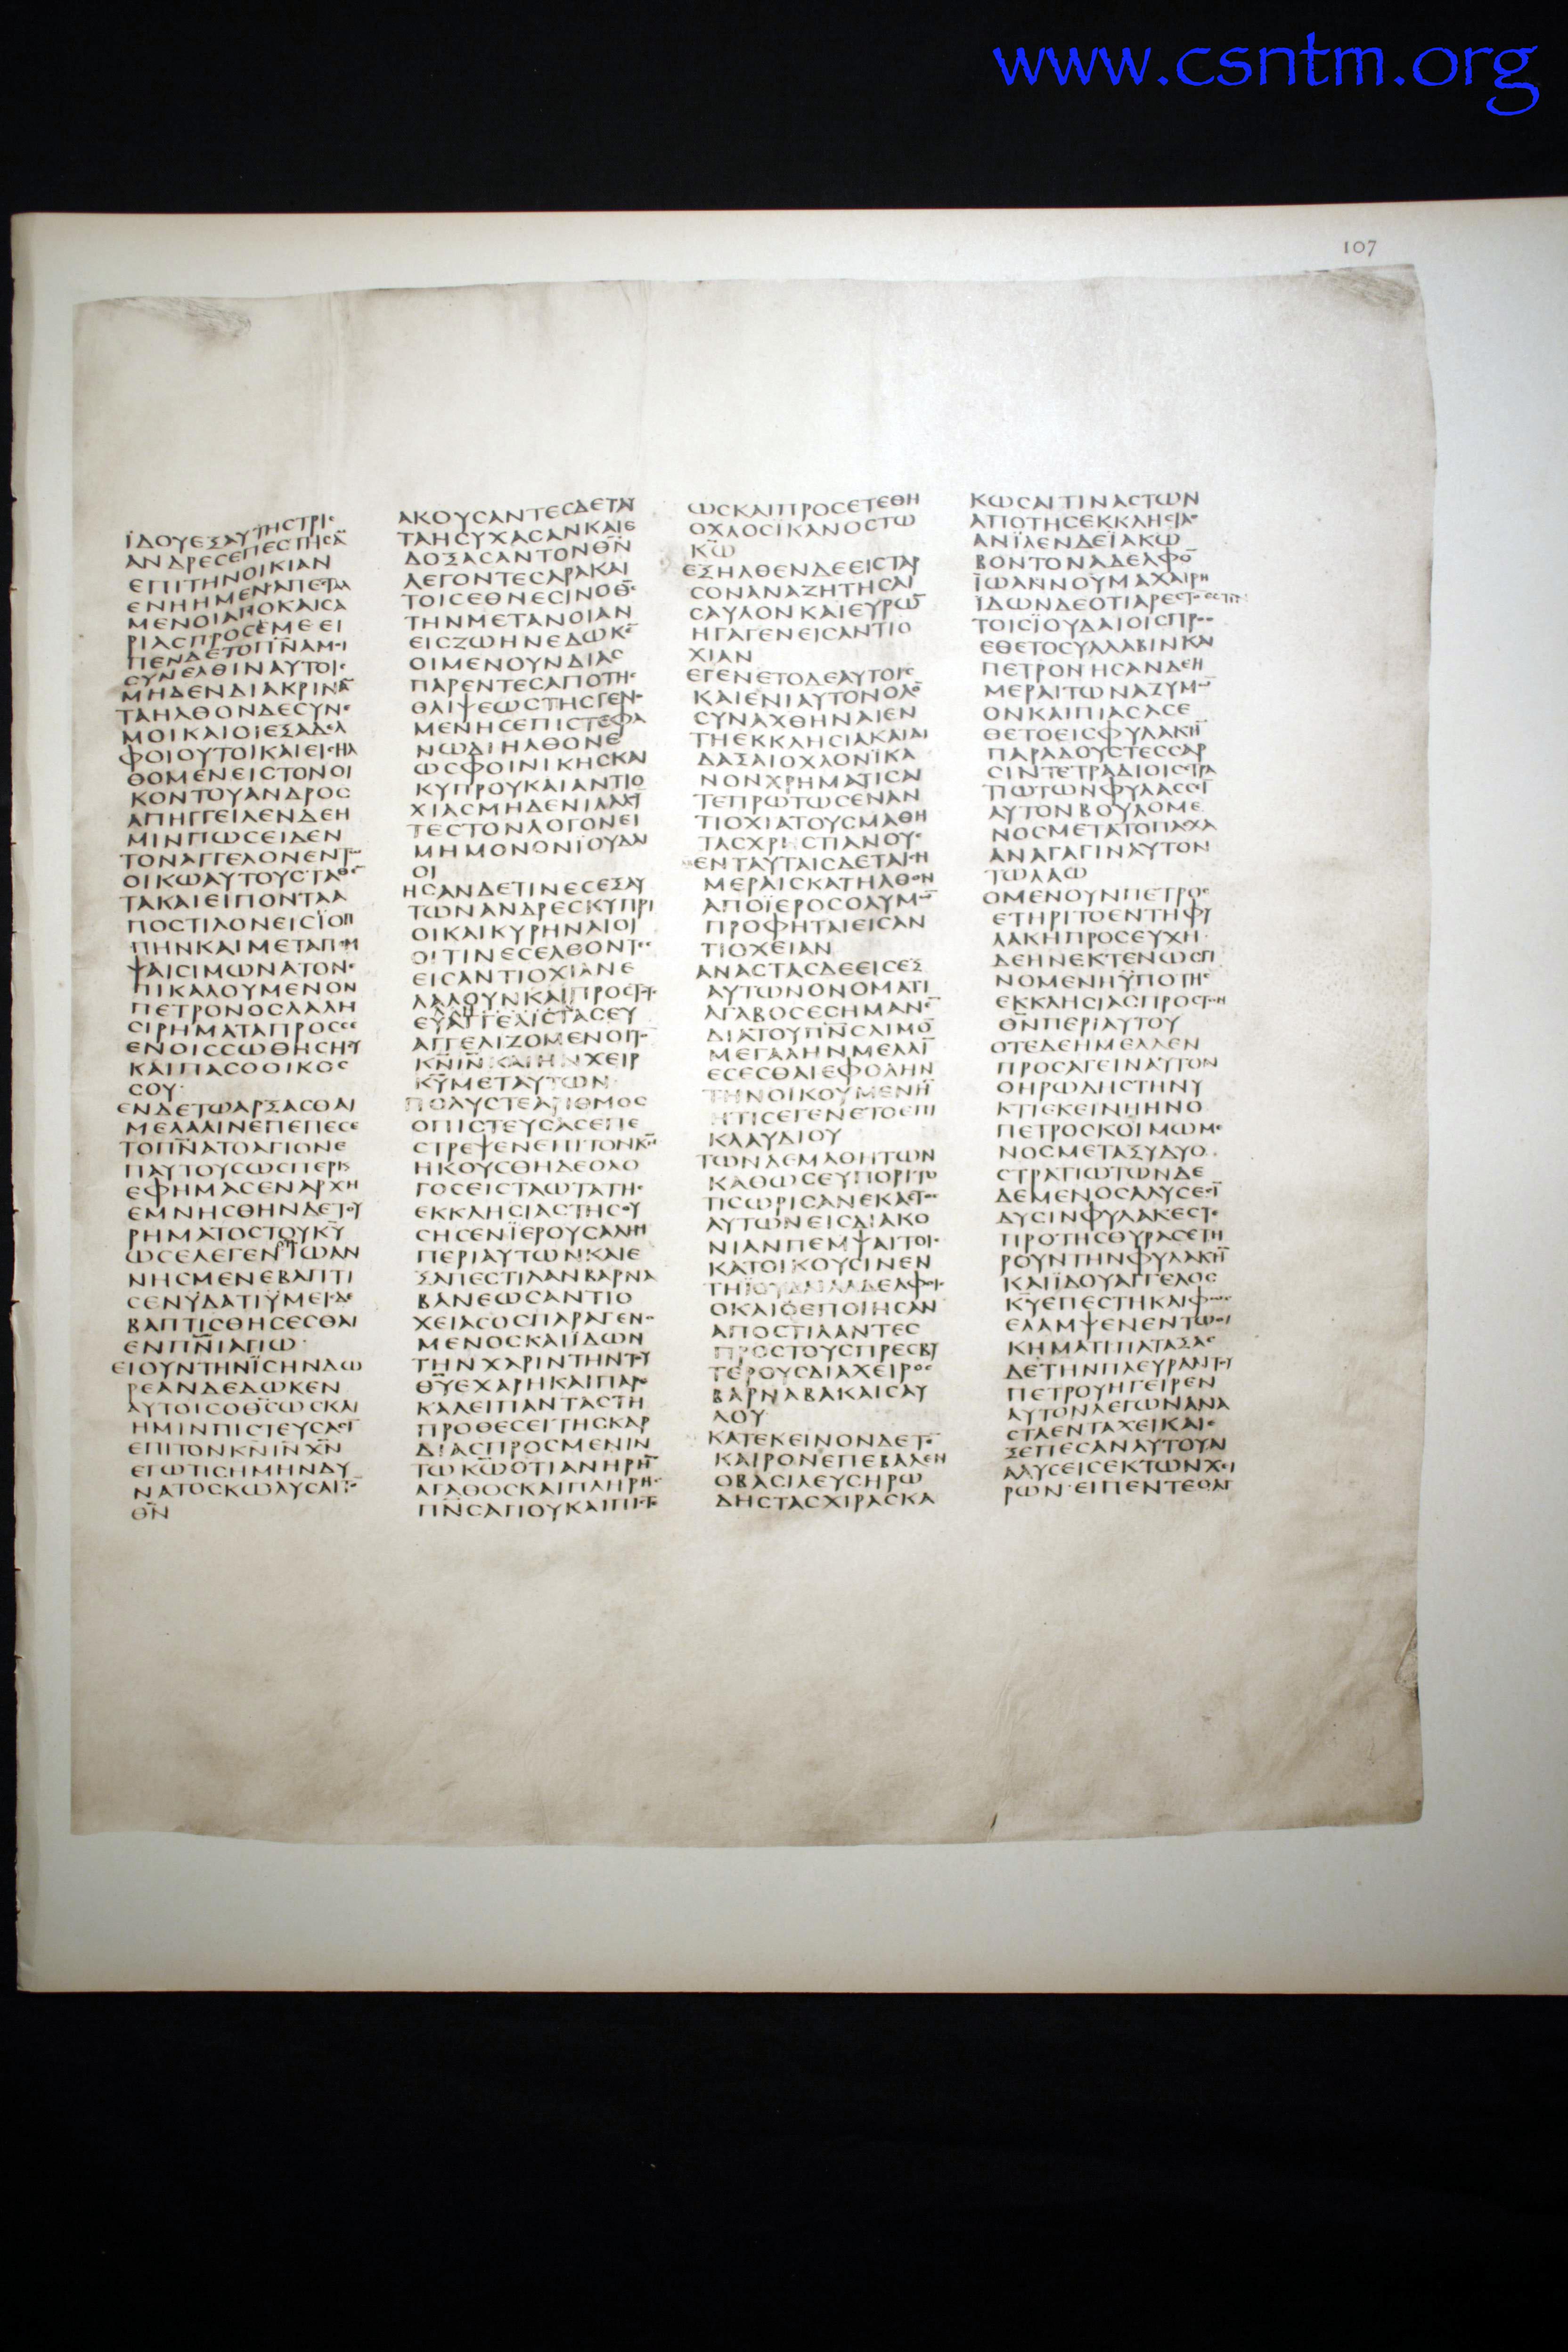 www.csntm.org
107
ΪΔΟΥΕΞΑΥΤΗΣΤΡΙΣ
ΑΝΔΡΕΣΕΠΕΣΤΗΣΑ̅
ΕΠΙΤΗΝΟΙΚΙΑΝ
ΕΝΗΗΜΕΝΑΠΕΣΤΑΛ
ΜΕΝΟΙΑΠΟΚΑΙΣΑ
ΡΙΑΣΠΡΟΣΕΜΕΕΙ
ΠΕΝΔΕΤΟΠΝ̅ΑΜΟΙ
ΣΥΝΕΛΘΙΝΑΥΤΟΙΣ
ΜΗΔΕΝΔΙΑΚΡΙΝΑ̅
ΤΑΗΛΘΟΝΔΕΣΥΝΕ
ΜΟΙΚΑΙΟΙΕΞΑΔΕΛ
ΦΟΙΟΥΤΟΙΚΑΙΕΙΣΗΛ
ΘΟΜΕΝΕΙΣΤΟΝΟΙ
ΚΟΝΤΟΥΑΝΔΡΟΣ
ΑΠΗΓΓΕΙΛΕΝΔΕΗ
ΜΙΝΠΩΣΕΙΔΕΝ
ΤΟΝΑΓΓΕΛΟΝΕΝΤΩ
ΟΙΚΩΑΥΤΟΥΣΤΑΘΕ̅
ΤΑΚΑΙΕΙΠΟΝΤΑΑ
ΠΟΣΤΙΛΟΝΕΙΣΪΟΠ
ΠΗΝΚΑΙΜΕΤΑΠΕΜ
ΨΑΙΣΙΜΩΝΑΤΟΝΕ
ΠΙΚΑΛΟΥΜΕΝΟΝ
ΠΕΤΡΟΝΟΣΛΑΛΗ
ΣΙΡΗΜΑΤΑΠΡΟΣΣΕ
ΕΝΟΙΣΣΩΘΗΣΗΣΥ
ΚΑΙΠΑΣΟΟΙΚΟΣ
ΣΟΥ·
ΕΝΔΕΤΩΑΡΞΑΣΘΑΙ
ΜΕΛΑΛΙΝΕΠΕΠΕΣΕ
ΤΟΠΝ̅ΑΤΟΑΓΙΟΝΕ
ΠΑΥΤΟΥΣΩΣΠΕΡΚΑΙ
ΕΦΗΜΑΣΕΝΑΡΧΗ
ΕΜΝΗΣΘΗΝΔΕΤΟΥ
ΡΗΜΑΤΟΣΤΟΥΚΥ̅
ΩΣΕΛΕΓΕΝΟΤΙΪΩΑΝ
ΝΗΣΜΕΝΕΒΑΠΤΙ
ΣΕΝΫΔΑΤΙΫΜΕΙΣΔΕ
ΒΑΠΤΙΣΘΗΣΕΣΘΑΙ
ΕΝΠΝΙ̅ΑΓΙΩ·
ΕΙΟΥΝΤΗΝΪΣΗΝΔΩ
ΡΕΑΝΔΕΔΩΚΕΝ
ΑΥΤΟΙΣΟΘΣ̅ΩΣΚΑΙ
ΗΜΙΝΠΙΣΤΕΥΣΑΣΙ̅
ΕΠΙΤΟΝΚΝ̅ΙΝ̅ΧΝ̅
ΕΓΩΤΙΣΗΜΗΝΔΥ
ΝΑΤΟΣΚΩΛΥΣΑΙΤΟ̅
ΘΝ̅
ΑΚΟΥΣΑΝΤΕΣΔΕΤΑΥ
ΤΑΗΣΥΧΑΣΑΝΚΑΙΕ
ΔΟΞΑΣΑΝΤΟΝΘΝ̅
ΛΕΓΟΝΤΕΣΑΡΑΚΑΙ
ΤΟΙΣΕΘΝΕΣΙΝΟΘΣ̅
ΤΗΝΜΕΤΑΝΟΙΑΝ
ΕΙΣΖΩΗΝΕΔΩΚΕ̅
ΟΙΜΕΝΟΥΝΔΙΑΣ
ΠΑΡΕΝΤΕΣΑΠΟΤΗΣ
ΘΛΙΨΕΩΣΤΗΣΓΕΝΟ
ΜΕΝΗΣΕΠΙΣΤΕΦΑ
ΝΩΔΙΗΛΘΟΝΕ
ΩΣΦΟΙΝΙΚΗΣΚΑΙ
ΚΥΠΡΟΥΚΑΙΑΝΤΙΟ
ΧΙΑΣΜΗΔΕΝΙΛΑΛΟΥ̅
ΤΕΣΤΟΝΛΟΓΟΝΕΙ
ΜΗΜΟΝΟΝΪΟΥΔΑΙ
ΟΙ
ΗΣΑΝΔΕΤΙΝΕΣΕΞΑΥ
ΤΩΝΑΝΔΡΕΣΚΥΠΡΙ
ΟΙΚΑΙΚΥΡΗΝΑΙΟΙ
ΟΙΤΙΝΕΣΕΛΘΟΝΤΕΣ
ΕΙΣΑΝΤΙΟΧΙΑΝΕ
ΛΑΛΟΥΝΚΑΙΠΡΟΣΤΟΥΣ
ΕΥΑΓΓΕΛΙΣΤΑΣΕΥ
ΑΓΓΕΛΙΖΟΜΕΝΟΙΤΟ̅
ΚΝ̅ΙΝ̅ΚΑΙΗΝΧΕΙΡ
ΚΥ̅ΜΕΤΑΥΤΩΝ·
ΠΟΛΥΣΤΕΑΡΙΘΜΟΣ
ΟΠΙΣΤΕΥΣΑΣΕΠΕ
ΣΤΡΕΨΕΝΕΠΙΤΟΝΚΝ̅
ΗΚΟΥΣΘΗΔΕΟΛΟ
ΓΟΣΕΙΣΤΑΩΤΑΤΗΣ
ΕΚΚΛΗΣΙΑΣΤΗΣΟΥ
ΣΗΣΕΝΪΕΡΟΥΣΑΛΗΜ
ΠΕΡΙΑΥΤΩΝΚΑΙΕ
ΞΑΠΕΣΤΙΛΑΝΒΑΡΝΑ
ΒΑΝΕΩΣΑΝΤΙΟ
ΧΕΙΑΣΟΣΠΑΡΑΓΕΝΟ
ΜΕΝΟΣΚΑΙΪΔΩΝ
ΤΗΝΧΑΡΙΝΤΗΝΤΟΥ
ΘΥ̅ΕΧΑΡΗΚΑΙΠΑΡΕ
ΚΑΛΕΙΠΑΝΤΑΣΤΗ
ΠΡΟΘΕΣΕΙΤΗΣΚΑΡ
ΔΙΑΣΠΡΟΣΜΕΝΙΝ
ΤΩΚΩ̅ΟΤΙΑΝΗΡΗ̅
ΑΓΑΘΟΣΚΑΙΠΛΗΡΗΣ
ΠΝΣ̅ΑΓΙΟΥΚΑΙΠΙΣΤΕ
ΩΣΚΑΙΠΡΟΣΕΤΕΘΗ
ΟΧΛΟΣΙΚΑΝΟΣΤΩ
ΚΩ̅
ΕΞΗΛΘΕΝΔΕΕΙΣΤΑΡ
ΣΟΝΑΝΑΖΗΤΗΣΑΙ
ΣΑΥΛΟΝΚΑΙΕΥΡΩ̅
ΗΓΑΓΕΝΕΙΣΑΝΤΙΟ
ΧΙΑΝ
ΕΓΕΝΕΤΟΔΕΑΥΤΟΙΣ
ΚΑΙΕΝΙΑΥΤΟΝΟΛΟ̅
ΣΥΝΑΧΘΗΝΑΙΕΝ
ΤΗΕΚΚΛΗΣΙΑΚΑΙΔΙ
ΔΑΞΑΙΟΧΛΟΝΪΚΑ
ΝΟΝΧΡΗΜΑΤΙΣΑΙ
ΤΕΠΡΩΤΩΣΕΝΑΝ
ΤΙΟΧΙΑΤΟΥΣΜΑΘΗ
ΤΑΣΧΡΗΣΤΙΑΝΟΥΣ
ΕΝΤΑΥΤΑΙΣΔΕΤΑΙΣΗ
ΜΕΡΑΙΣΚΑΤΗΛΘΟΝ
ΑΠΟΪΕΡΟΣΟΛΥΜΩ̅
ΠΡΟΦΗΤΑΙΕΙΣΑΝ
ΤΙΟΧΕΙΑΝ
ΑΝΑΣΤΑΣΔΕΕΙΣΕΞ
ΑΥΤΩΝΟΝΟΜΑΤΙ
ΑΓΑΒΟΣΕΣΗΜΑΝΕ̅
ΔΙΑΤΟΥΠΝΣ̅ΛΙΜΟ̅
ΜΕΓΑΛΗΝΜΕΛΛΙ̅
ΕΣΕΣΘΑΙΕΦΟΛΗΝ
ΤΗΝΟΙΚΟΥΜΕΝΗ̅
ΗΤΙΣΕΓΕΝΕΤΟΕΠΙ
ΚΛΑΥΔΙΟΥ
ΤΩΝΔΕΜΑΘΗΤΩΝ
ΚΑΘΩΣΕΥΠΟΡΙΤΟ
ΤΙΣΩΡΙΣΑΝΕΚΑΣΤΟΣ
ΑΥΤΩΝΕΙΣΔΙΑΚΟ
ΝΙΑΝΠΕΜΨΑΙΤΟΙΣ
ΚΑΤΟΙΚΟΥΣΙΝΕΝ
ΤΗΪΟΥΔΑΙΑΑΔΕΛΦΟΙΣ
ΟΚΑΙΟΕΠΟΙΗΣΑΝ
ΑΠΟΣΤΙΛΑΝΤΕΣ
ΠΡΟΣΤΟΥΣΠΡΕΣΒΥ
ΤΕΡΟΥΣΔΙΑΧΕΙΡΟΣ
ΒΑΡΝΑΒΑΚΑΙΣΑΥ
ΛΟΥ
ΚΑΤΕΚΕΙΝΟΝΔΕΤΟ̅
ΚΑΙΡΟΝΕΠΕΒΑΛΕΝ
ΟΒΑΣΙΛΕΥΣΗΡΩ
ΔΗΣΤΑΣΧΙΡΑΣΚΑ
ΚΩΣΑΙΤΙΝΑΣΤΩΝ
ΑΠΟΤΗΣΕΚΚΛΗΣΙΑΣ
ΑΝΪΛΕΝΔΕΪΑΚΩ
ΒΟΝΤΟΝΑΔΕΛΦΟ̅
ΪΩΑΝΝΟΥΜΑΧΑΙΡΗ
ΪΔΩΝΔΕΟΤΙΑΡΕΣΤΟΝΕΣΤΙΝ
ΤΟΙΣΪΟΥΔΑΙΟΙΣΠΡΟΣ
ΕΘΕΤΟΣΥΛΛΑΒΙΝΚΑΙ
ΠΕΤΡΟΝΗΣΑΝΔΕΗ
ΜΕΡΑΙΤΩΝΑΖΥΜΩ̅
ΟΝΚΑΙΠΙΑΣΑΣΕ
ΘΕΤΟΕΙΣΦΥΛΑΚΗ̅
ΠΑΡΑΔΟΥΣΤΕΣΣΑΡ
ΣΙΝΤΕΤΡΑΔΙΟΙΣΣΤΡΑ
ΤΙΩΤΩΝΦΥΛΑΣΣΕΙ̅
ΑΥΤΟΝΒΟΥΛΟΜΕ
ΝΟΣΜΕΤΑΤΟΠΑΣΧΑ
ΑΝΑΓΑΓΙΝΑΥΤΟΝ
ΤΩΛΑΩ
ΟΜΕΝΟΥΝΠΕΤΡΟΣ
ΕΤΗΡΙΤΟΕΝΤΗΦΥ
ΛΑΚΗΠΡΟΣΕΥΧΗ
ΔΕΗΝΕΚΤΕΝΩΣΓΙ
ΝΟΜΕΝΗΫΠΟΤΗΣ
ΕΚΚΛΗΣΙΑΣΠΡΟΣΤΟΝ
ΘΝ̅ΠΕΡΙΑΥΤΟΥ
ΟΤΕΔΕΗΜΕΛΛΕΝ
ΠΡΟΣΑΓΕΙΝΑΥΤΟΝ
ΟΗΡΩΔΗΣΤΗΝΥ
ΚΤΙΕΚΕΙΝΗΗΝΟ
ΠΕΤΡΟΣΚΟΙΜΩΜΕ
ΝΟΣΜΕΤΑΞΥΔΥΟ
ΣΤΡΑΤΙΩΤΩΝΔΕ
ΔΕΜΕΝΟΣΑΛΥΣΕΣΙ̅
ΔΥΣΙΝΦΥΛΑΚΕΣΤΕ
ΠΡΟΤΗΣΘΥΡΑΣΕΤΗ
ΡΟΥΝΤΗΝΦΥΛΑΚΗ̅
ΚΑΙΪΔΟΥΑΓΓΕΛΟΣ
ΚΥ̅ΕΠΕΣΤΗΚΑΙΦΩΣ
ΕΛΑΜΨΕΝΕΝΤΩΟΙ
ΚΗΜΑΤΙΠΑΤΑΞΑΣ
ΔΕΤΗΝΠΛΕΥΡΑΝΤΟΥ
ΠΕΤΡΟΥΗΓΕΙΡΕΝ
ΑΥΤΟΝΛΕΓΩΝΑΝΑ
ΣΤΑΕΝΤΑΧΕΙΚΑΙΕ
ΞΕΠΕΣΑΝΑΥΤΟΥΑΙ
ΑΛΥΣΕΙΣΕΚΤΩΝΧΕΙ
ΡΩΝ·ΕΙΠΕΝΤΕΟΑΓ